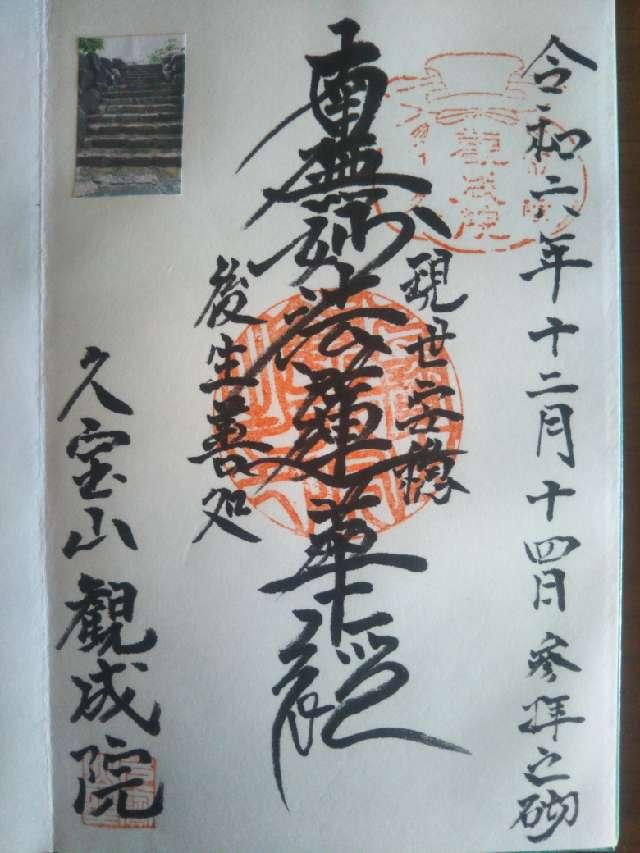 令和六年十二月十四日參拝之砌
観成院
現世安穏
南無妙法蓮華経
後生善処
久宝山観成院